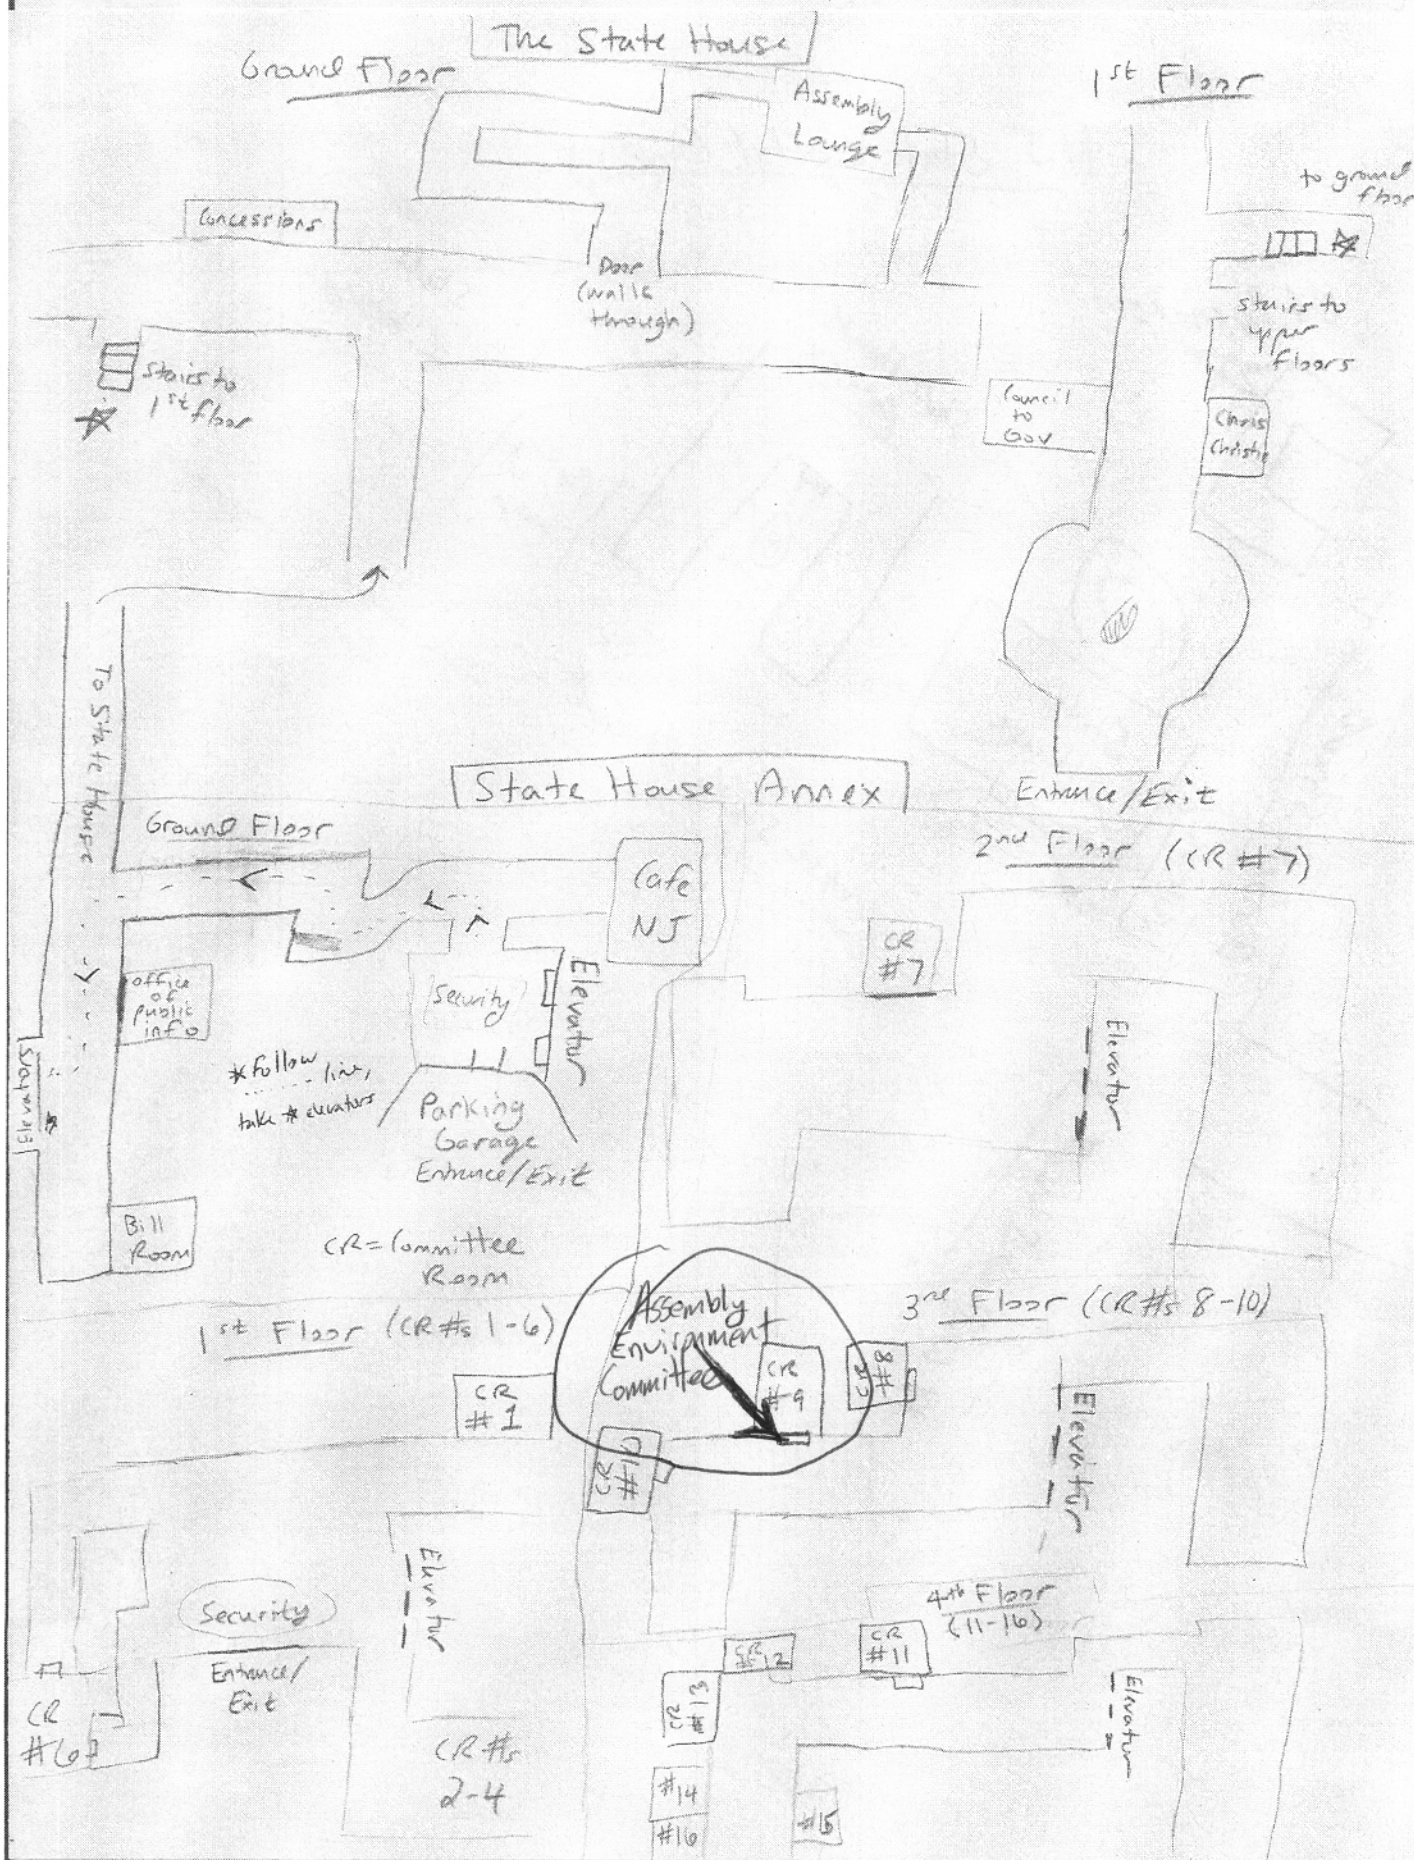 The State House
Ground Floor
1st Floor
Assembly
Lounge
to ground
floor
Concessions
Door
(walls
through)
stairs to
upper
floors
Stairs to
1st floor
Council
to
Gov
Chris
Christie
To State House
State House Annex
Entrance/Exit
Ground Floor
2nd Floor (CR #7)
Cafe
NJ
CR
#7
office
of
public
info
Security
Elevator
Elevator
Elevators
*Follow
line,
take * elevators
Parking
Garage
Entrance/Exit
Bill
Room
CR = Committee
Room
1st Floor (CR #s 1-6)
Assembly
Environment
Committee
3rd Floor (CR #s 8-10)
CR
#9
CR
#8
CR
#1
CR
#10
Elevator
Elevator
Security
Entrance/
Exit
4th Floor
(11-16)
CR
#12
CR
#11
CR
#13
Elevator
CR
#6
CR #s
2-4
#14
#16
#15